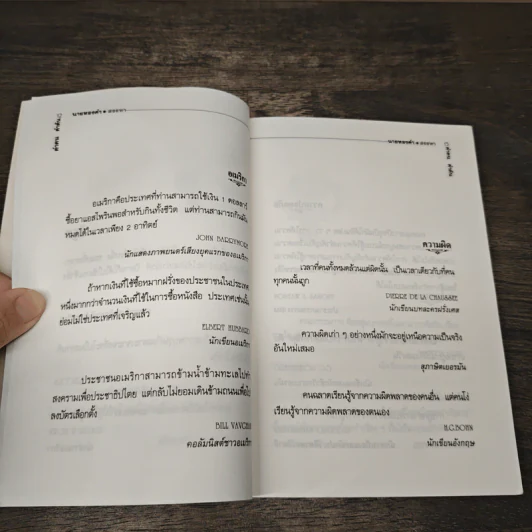 นายทองคำ • สรรหา
คำคน คำคม
อเมริกา
อเมริกาคือประเทศที่ท่านสามารถใช้เงิน 1 ดอลลาร์
ซื้อยาแอสไพรินพอสำหรับกินทั้งชีวิต แต่ท่านสามารถกินมัน
หมดได้ในเวลาเพียง 2 อาทิตย์
JOHN BARRYMORE
นักแสดงภาพยนตร์เสียงยุคแรกของอเมริกา
ถ้าหากเงินที่ใช้ซื้อหมากฝรั่งของประชาชนในประเทศ
หนึ่งมากกว่าจำนวนเงินที่ใช้ในการซื้อหนังสือ ประเทศเช่นนั้น
ย่อมไม่ใช่ประเทศที่เจริญแล้ว
ELBERT HUBBARD
นักเขียนอเมริกา
ประชาชนอเมริกาสามารถข้ามน้ำข้ามทะเลไปทำ
สงครามเพื่อประชาธิปไตย แต่กลับไม่ยอมเดินข้ามถนนเพื่อไป
ลงบัตรเลือกตั้ง
BILL VAUGHAN
คอลัมนิสต์ชาวอเมริกา
นายทองคำ • สรรหา
คำคน คำคม
ความผิด
เวลาที่คนทั้งหมดล้วนแต่ผิดนั้น เป็นเวลาเดียวกับที่คน
ทุกคนนั้นถูก
PIERRE DE LA CHAUSSEE
นักเขียนบทละครฝรั่งเศส
ความผิดเก่า ๆ อย่างหนึ่งมักจะอยู่เหนือความเป็นจริง
อันใหม่เสมอ
สุภาษิตเยอรมัน
คนฉลาดเรียนรู้จากความผิดพลาดของคนอื่น แต่คนโง่
เรียนรู้จากความผิดพลาดของตนเอง
H.G.BOHN
นักเขียนอังกฤษ